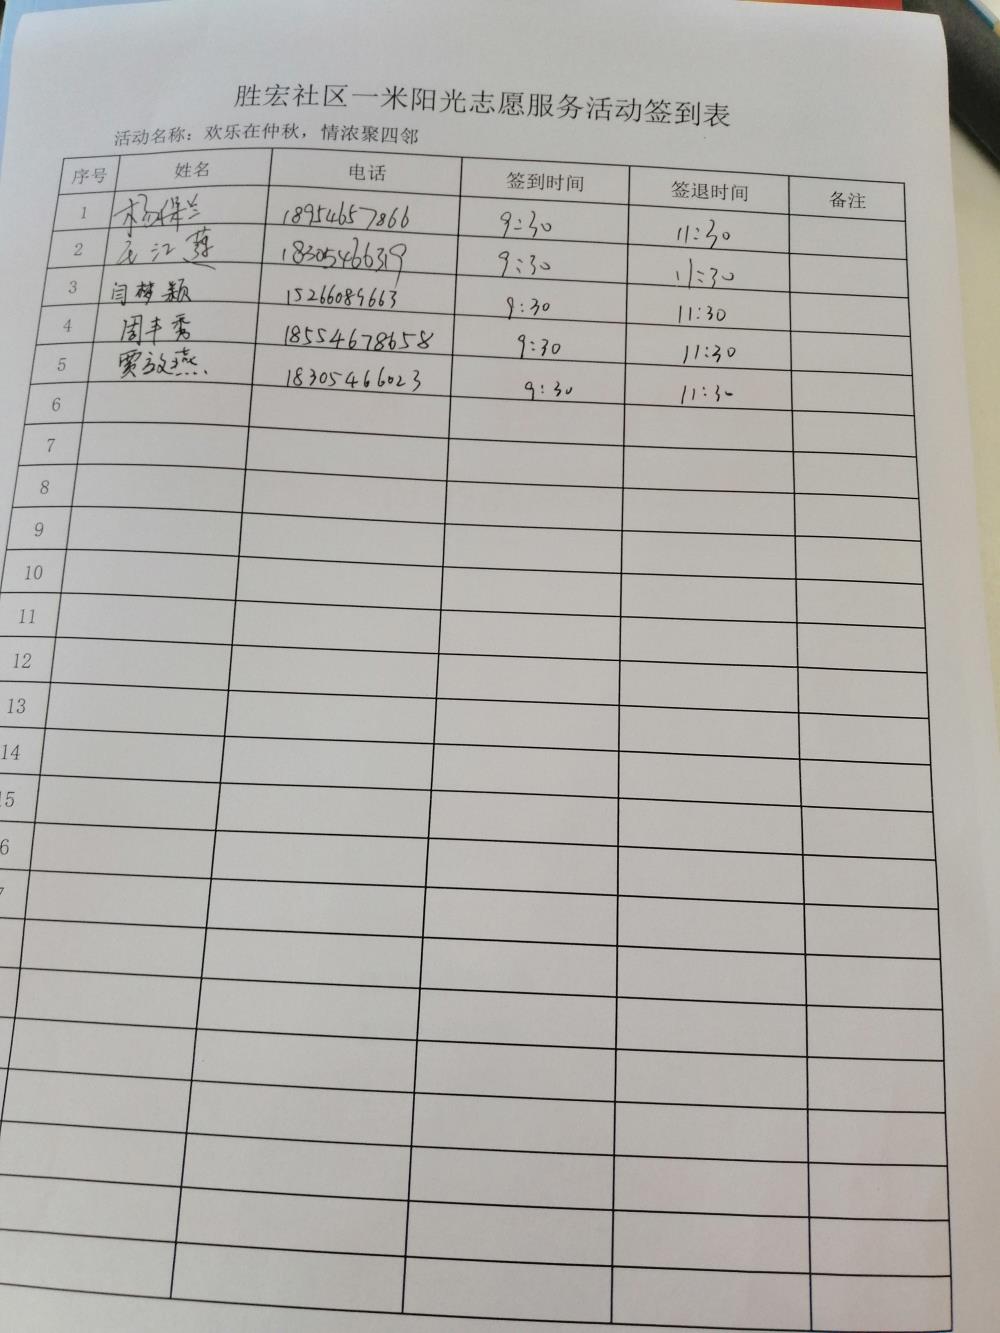 胜宏社区一米阳光志愿服务活动签到表
活动名称：欢乐在仲秋，情浓聚四邻
序号 姓名 电话 签到时间 签退时间 备注
1 杨保兰 18954657866 9:30 11:30
2 江燕 18305466319 9:30 11:30
3 闫梦颖 15266089663 9:30 11:30
4 周丰秀 18554678658 9:30 11:30
5 贾放燕 18305466023 9:30 11:30
6
7
8
9
10
11
12
13
14
15
6
7